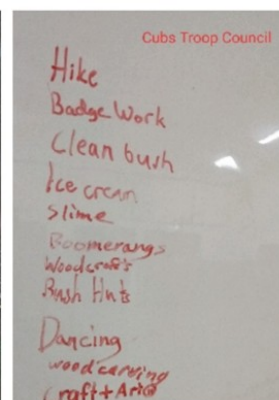 Cubs Troop Council
Hike
Badge Work
Clean bush
Ice cream
Slime
Boomerangs
Woodcrafts
Bush Huts
Dancing
woodcarving
Craft + Art